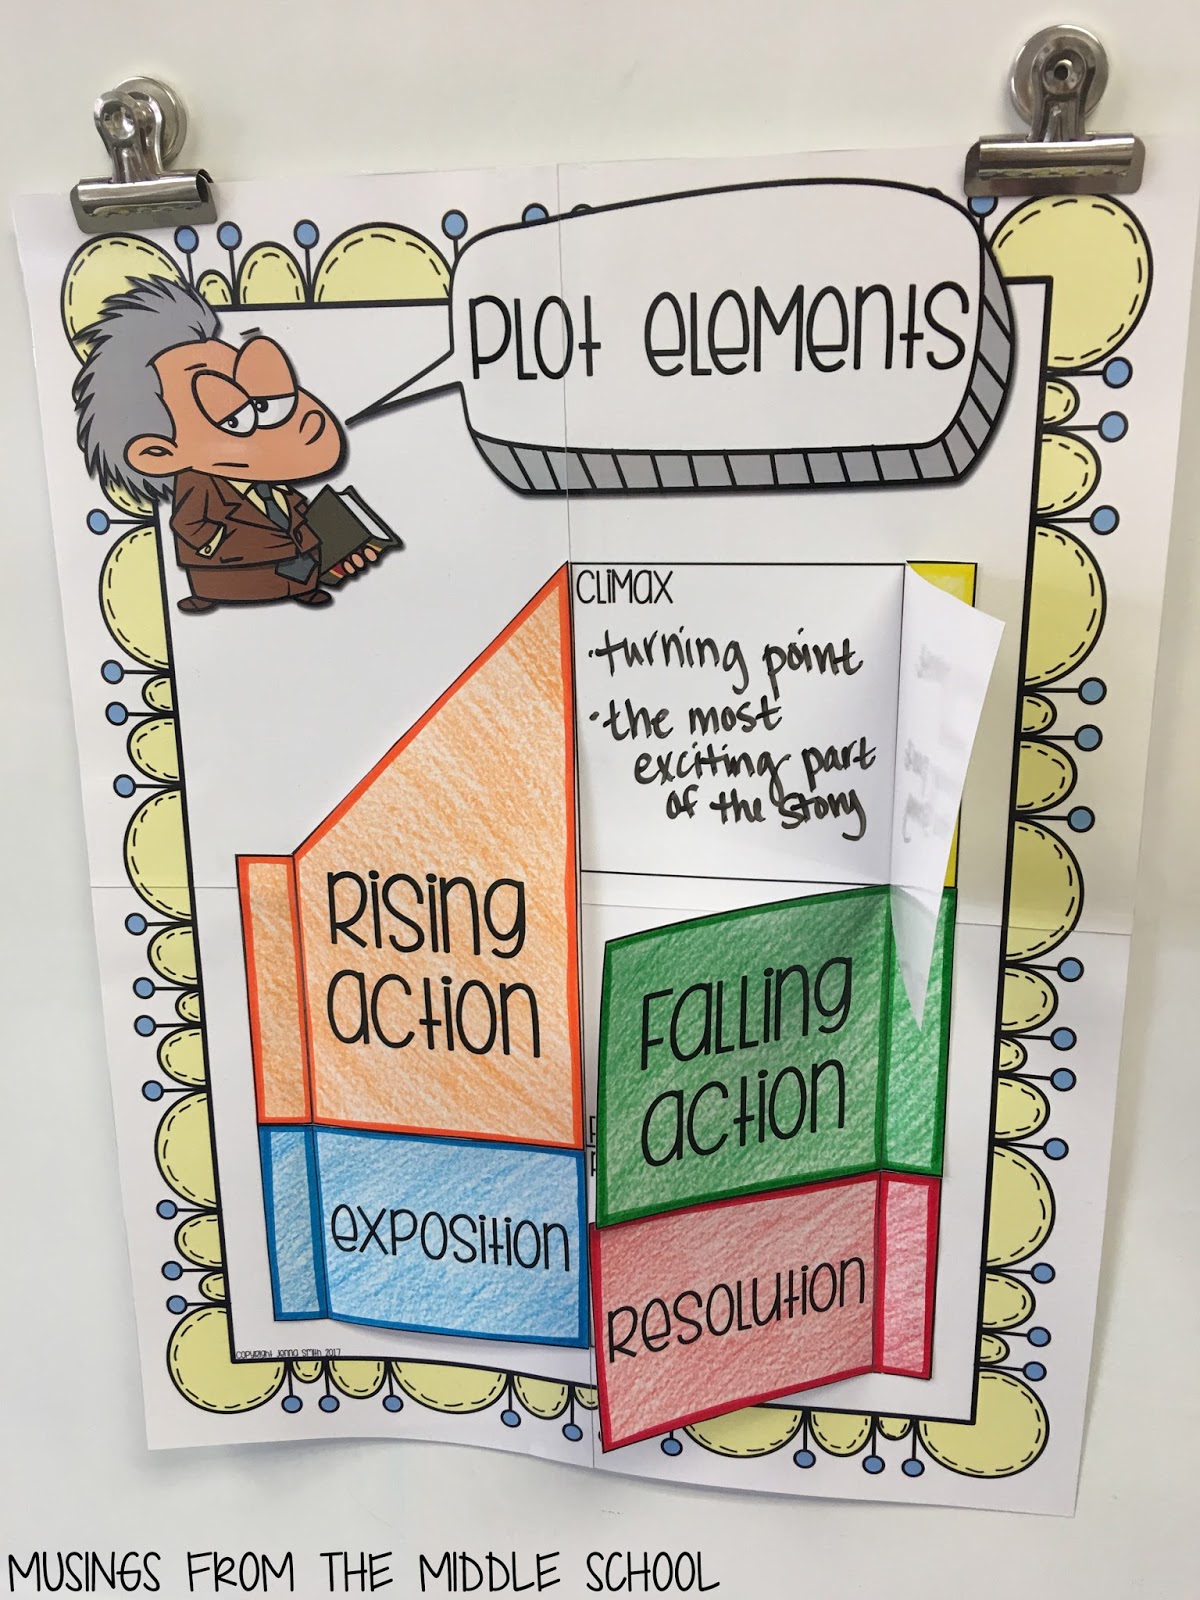 PLOT ELEMENTS
CLIMAX
• turning point
• the most
exciting part
of the story
Rising
action
Falling
action
exposition
Resolution
Copyright Jenna Smith 2017
MUSINGS FROM THE MIDDLE SCHOOL